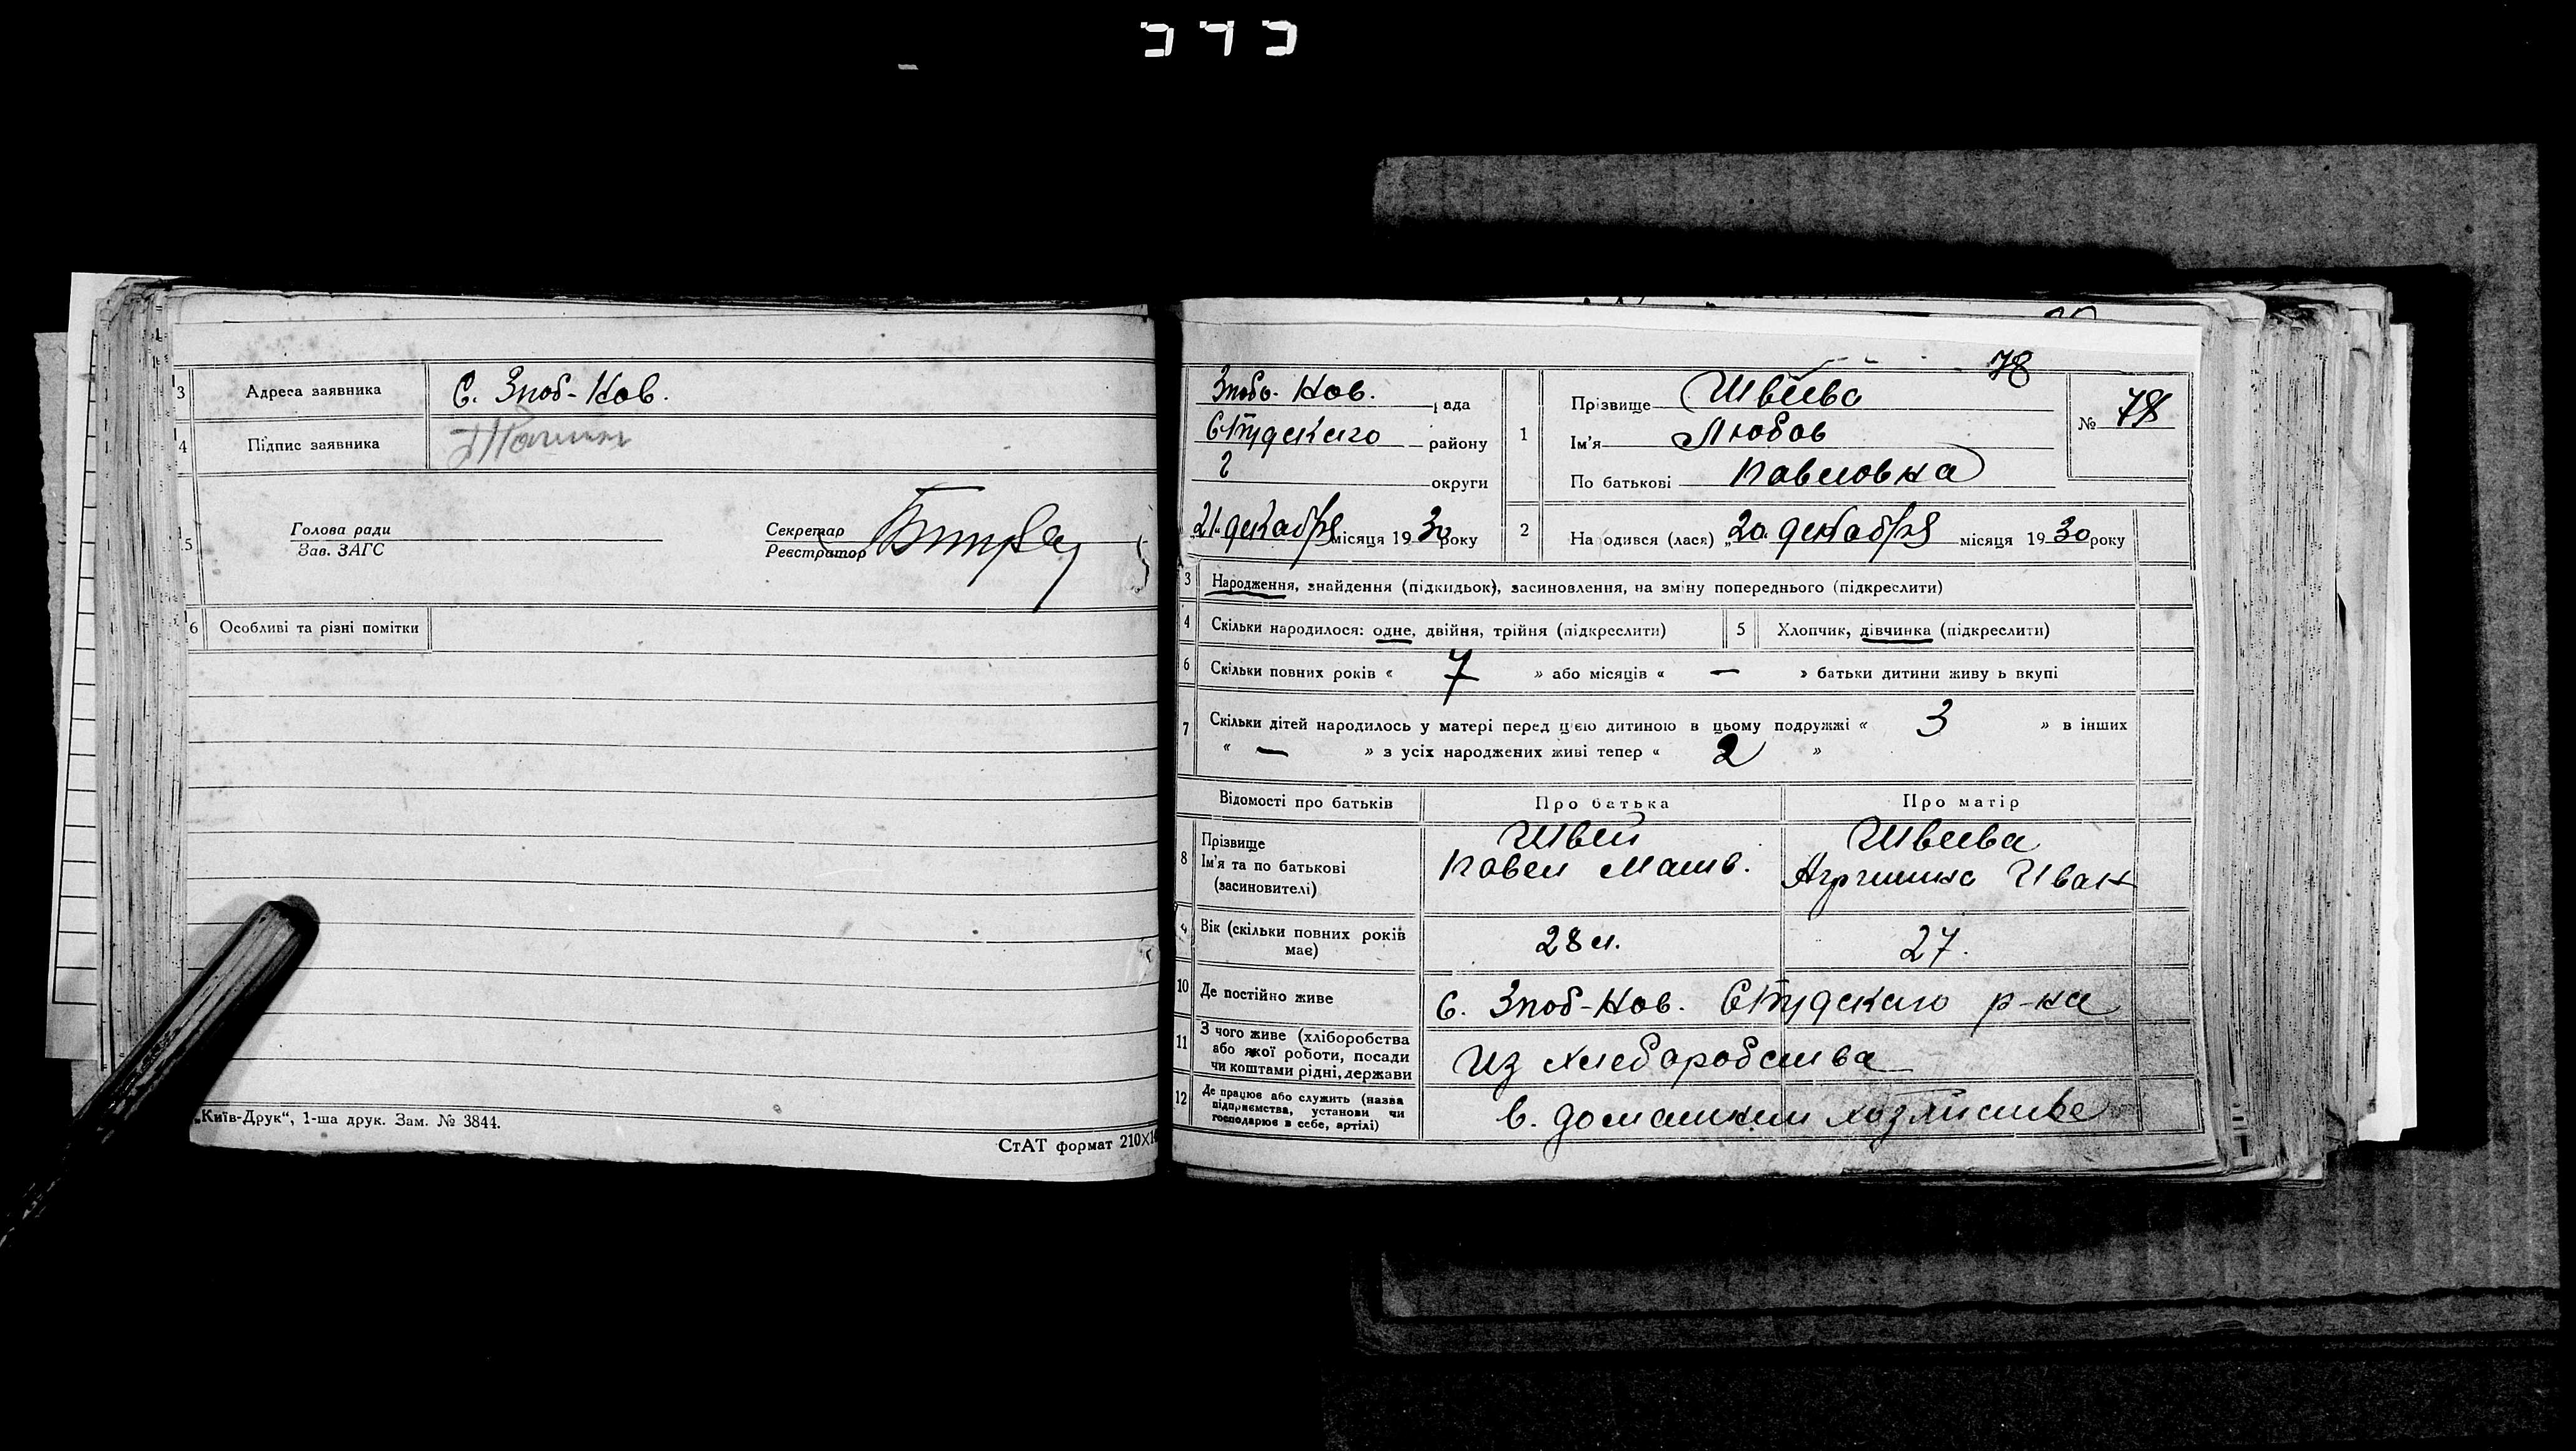 3 Адреса заявника С. Зноб-Нов.
4 Підпис заявника
5 Голова ради
Зав. ЗАГС
Секретар
Реєстратор
6 Особливі та різні помітки
„Київ-Друк“, 1-ша друк. Зам. № 3844.
СтАТ формат 210×1
78
Зноб-Нов. рада
району
округи
21 декабря місяця 1930 року
1 Прізвище Швеева
Ім'я Любов
По батькові Павловна
№ 78
2 Народився (лася) „20 декабря місяця 1930 року
3 Народження, знайдення (підкидьок), засиновлення, на зміну попереднього (підкреслити)
4 Скільки народилося: одне, двійня, трійня (підкреслити) 5 Хлопчик, дівчинка (підкреслити)
6 Скільки повних років « 7 » або місяців « — » батьки дитини живуь вкупі
7 Скільки дітей народилось у матері перед цією дитиною в цьому подружжі « 3 » в інших
« — » з усіх народжених живі тепер « 2 »
Відомості про батьків Про батька Про матір
8 Прізвище
Ім'я та по батькові
(засновителі)
Швей
Павел Матв.
Швеева
Иван
9 Вік (скільки повних років
має)
28 л.
27.
10 Де постійно живе с. Зноб-Нов. р-на
11 З чого живе (хліборобства
або якої роботи, посади
чи коштами рідні, держави
Из хлеборобства
12 Де працює або служить (назва
підприємства, установи чи
господарює в себе, артілі)
в. домашнем хозяйстве